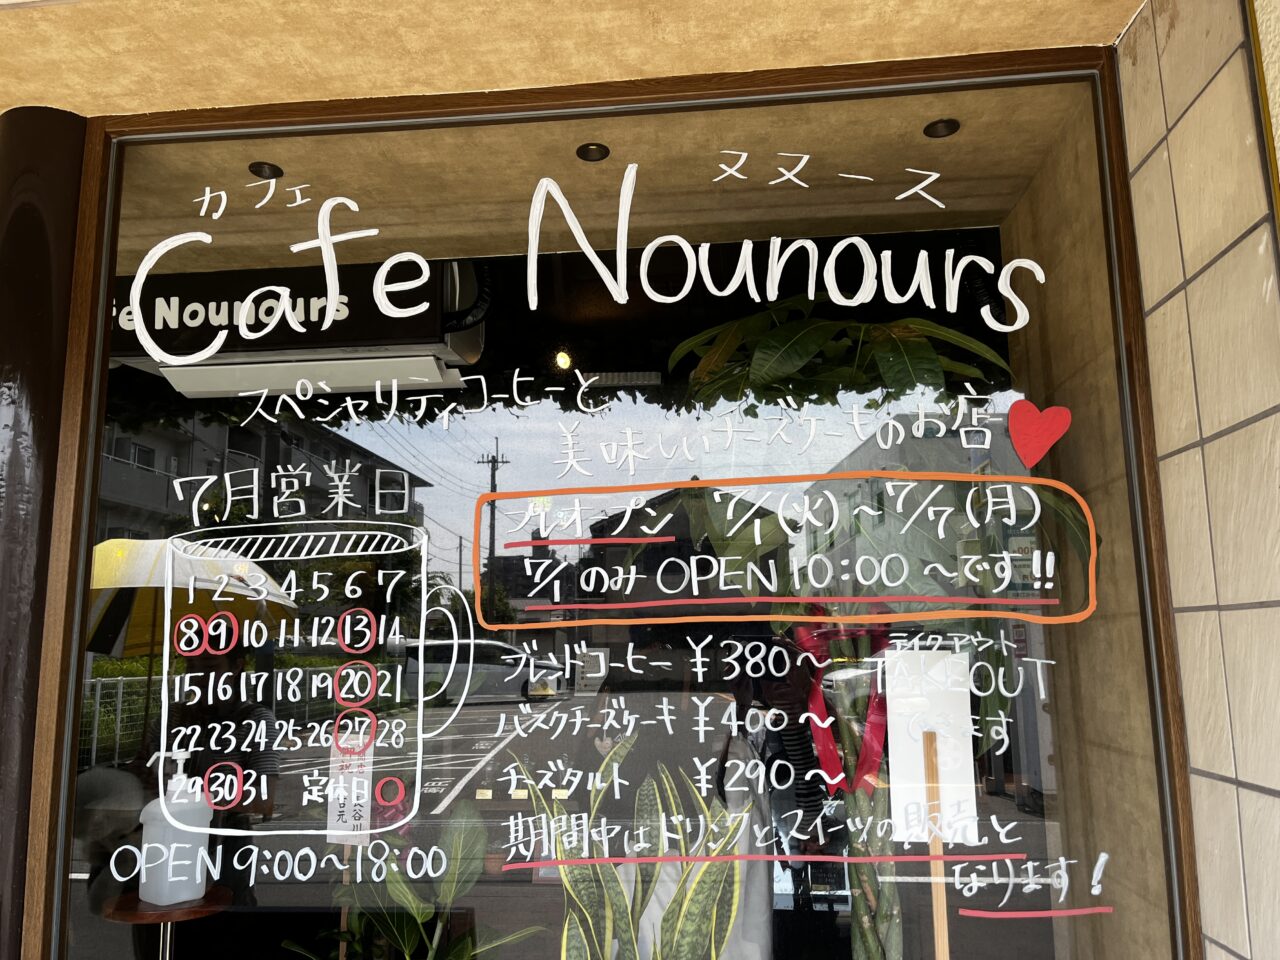 カフェ ヌヌース
Cafe Nounours
fe Nounours
スペシャリティコーヒーと
美味しいチーズケーキのお店
7月営業日
1 2 3 4 5 6 7
8 9 10 11 12 13 14
15 16 17 18 19 20 21
22 23 24 25 26 27 28
29 30 31 定休日
OPEN 9:00~18:00
プレオープン 7/1(火)~7/7(月)
7/1のみOPEN 10:00~です!!
ブレンドコーヒー ¥380~
バスクチーズケーキ ¥400~
チーズタルト ¥290~
テイクアウト
TAKEOUT
できます
期間中はドリンクとスイーツの販売と
なります!